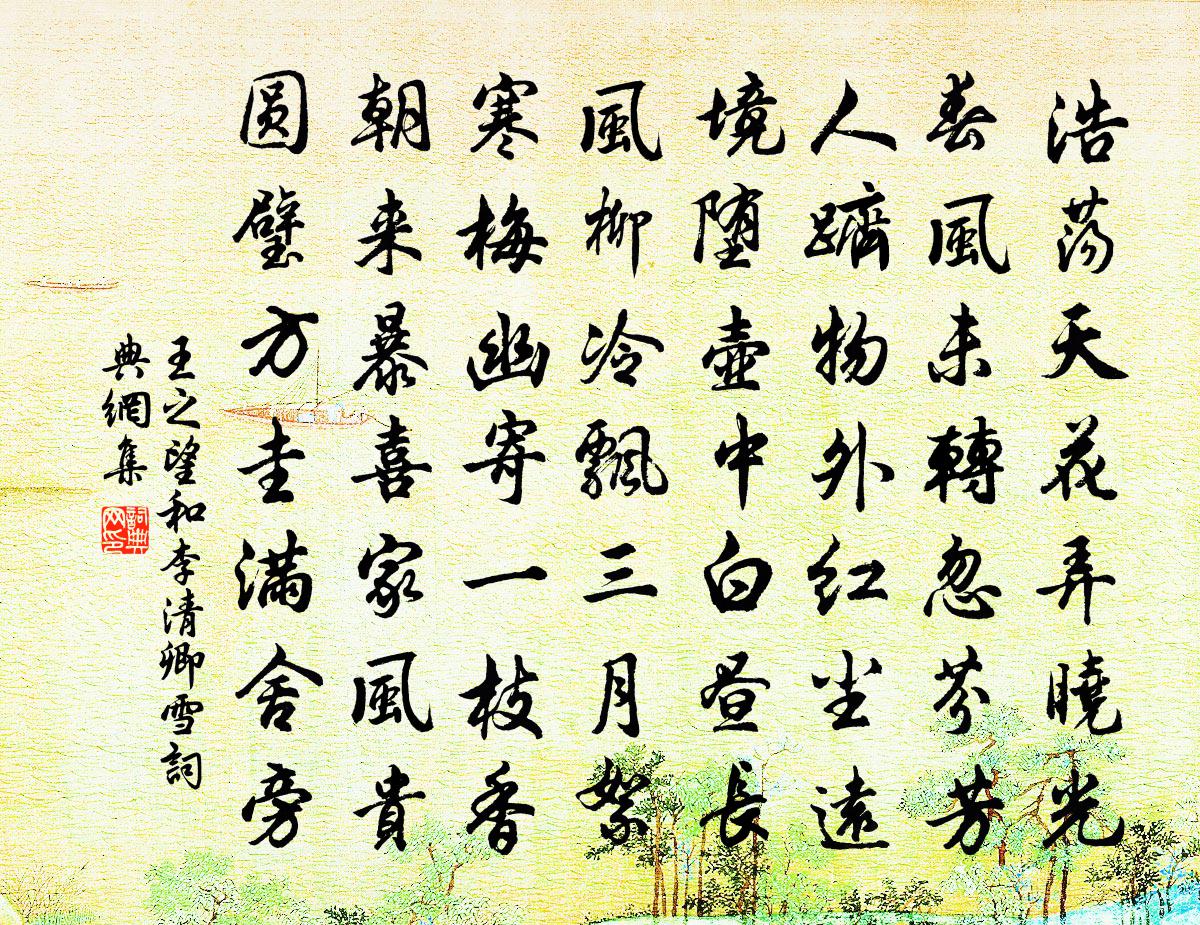 浩荡天花弄曉光
春風未轉忽芬芳
人躋物外红尘遠
境堕壺中白昼長
風柳冷飄三月絮
寒梅幽寄一枝香
朝来暴喜家風貴
圆璧方圭滿舍旁
王之望和李清卿雪詞
典網集
詞典
网印